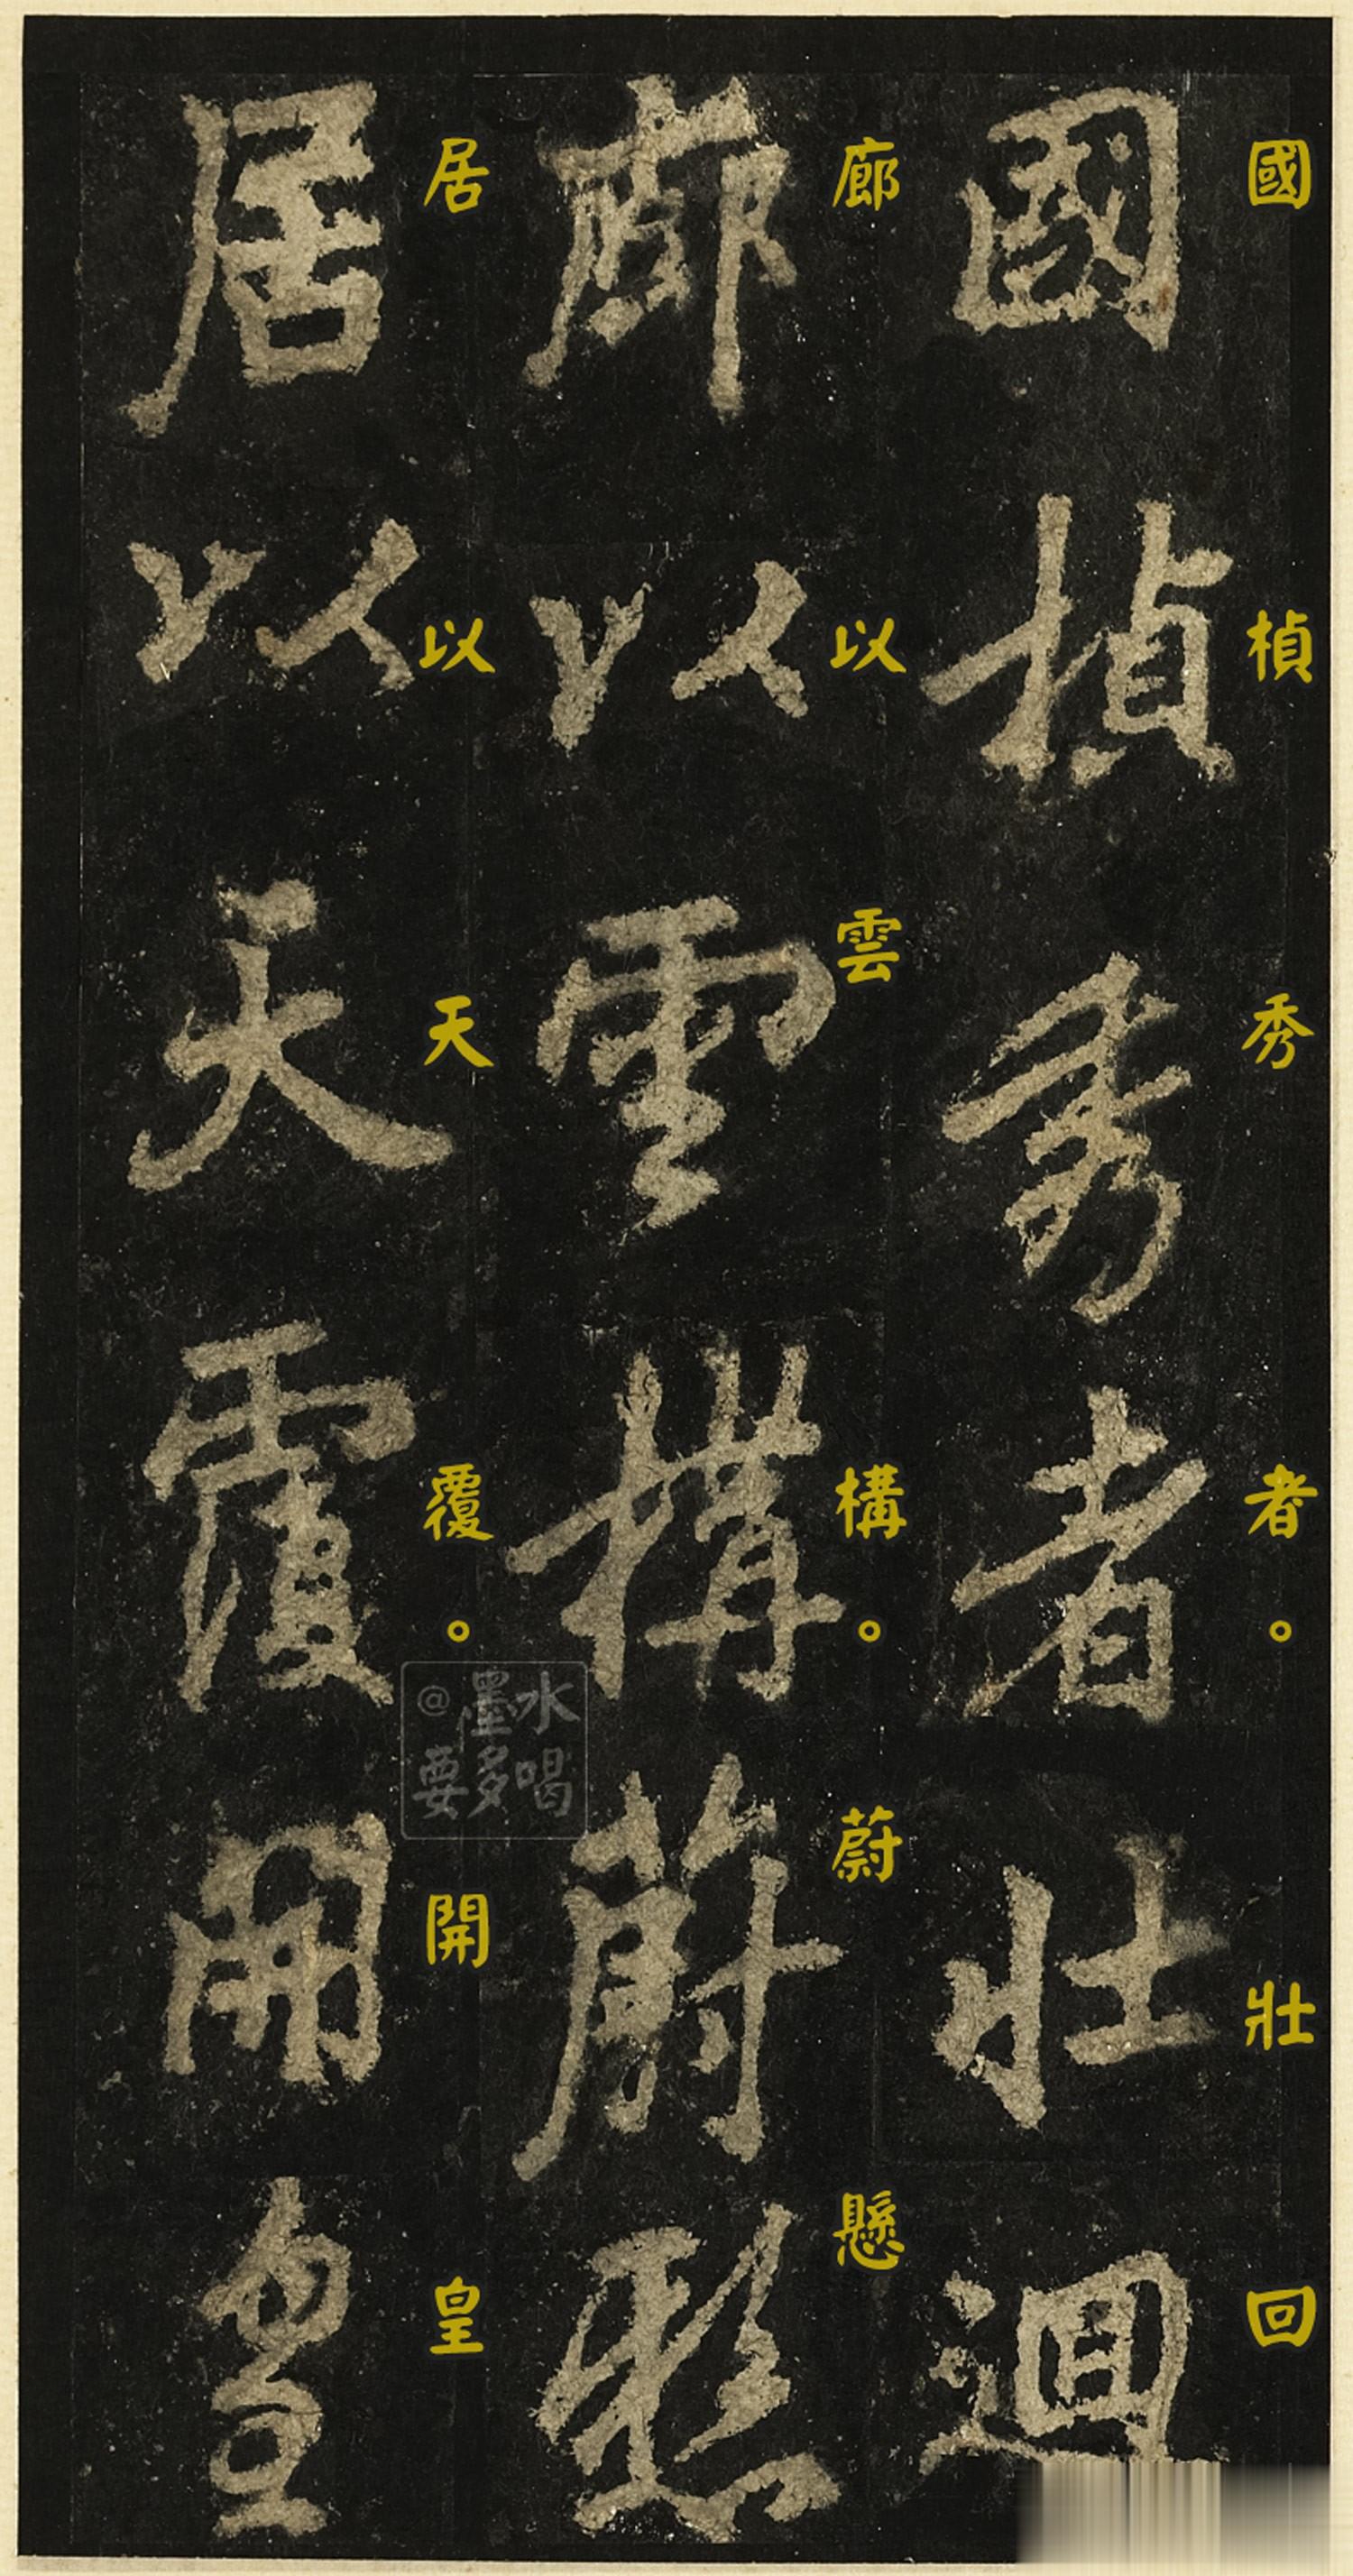 國楨秀者壯迴
國楨秀者。壯回
廊以雲構蔚懸
廊以雲構。蔚懸
居以天覆開皇
居以天覆。開皇
@墨水
要多喝